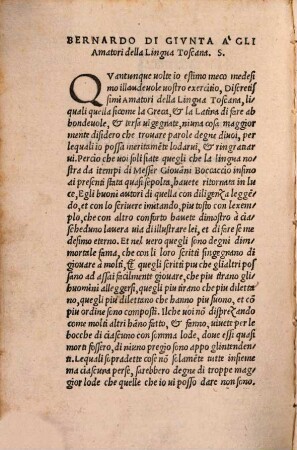 BERNARDO DI GIVNTA A' GLI
Amatori della Lingua Toscana. S.
QVantunque uolte io estimo meco medesi
mo il laudeuole uostro exercitio, Discretis
simi Amatori della Lingua Toscana, li
quali quella sicome la Greca, & la Latina di fare ab
bondeuole, & tersa ui gegnate, niuna cosa maggior
mente disidero che trouare parole degne di uoi, per
lequali io possa meritamēte lodarui, & ringratiar
ui. Percio che uoi soli siate quegli che la lingua no
stra da i tempi di Messer Giouāni Boccaccio infino
a i presenti stata quasi sepolta, hauete ritornata in lu
ce. E gli buoni autori di quella con diligēza leggē
do, et con lo scriuere imitando, piu tosto con lexem
plo, che con altro conforto hauete dimostro à cia
scheduno la uera uia di illustrare lei, et di fare se me
desimo eterno. Et nel uero quegli sono degni di im
mortale fama, che con le loro scritti singegnano di
giouare à molti, & quegli scritti piu che gli altri pos
sano ad assai facilmente giouare, che piu tirano gli
huomini a lleggersi, quegli piu tirano che piu diletta
no, quegli piu dilettano che hanno piu suono, et cō
piu ordine sono composti. Il che uoi nō disprezzando
come molti altri hāno fatto, & fanno, uiuete per le
bocche di ciascuno con somma lode, doue essi quasi
morti fossero, di niuno pregio sono appo glintenden
ti. Lequali sopradette cose nō solamēte tutte insieme
ma ciascuna perse, sarebbero degne di troppe mag
gior lode che quelle che io ui posso dare non sono.